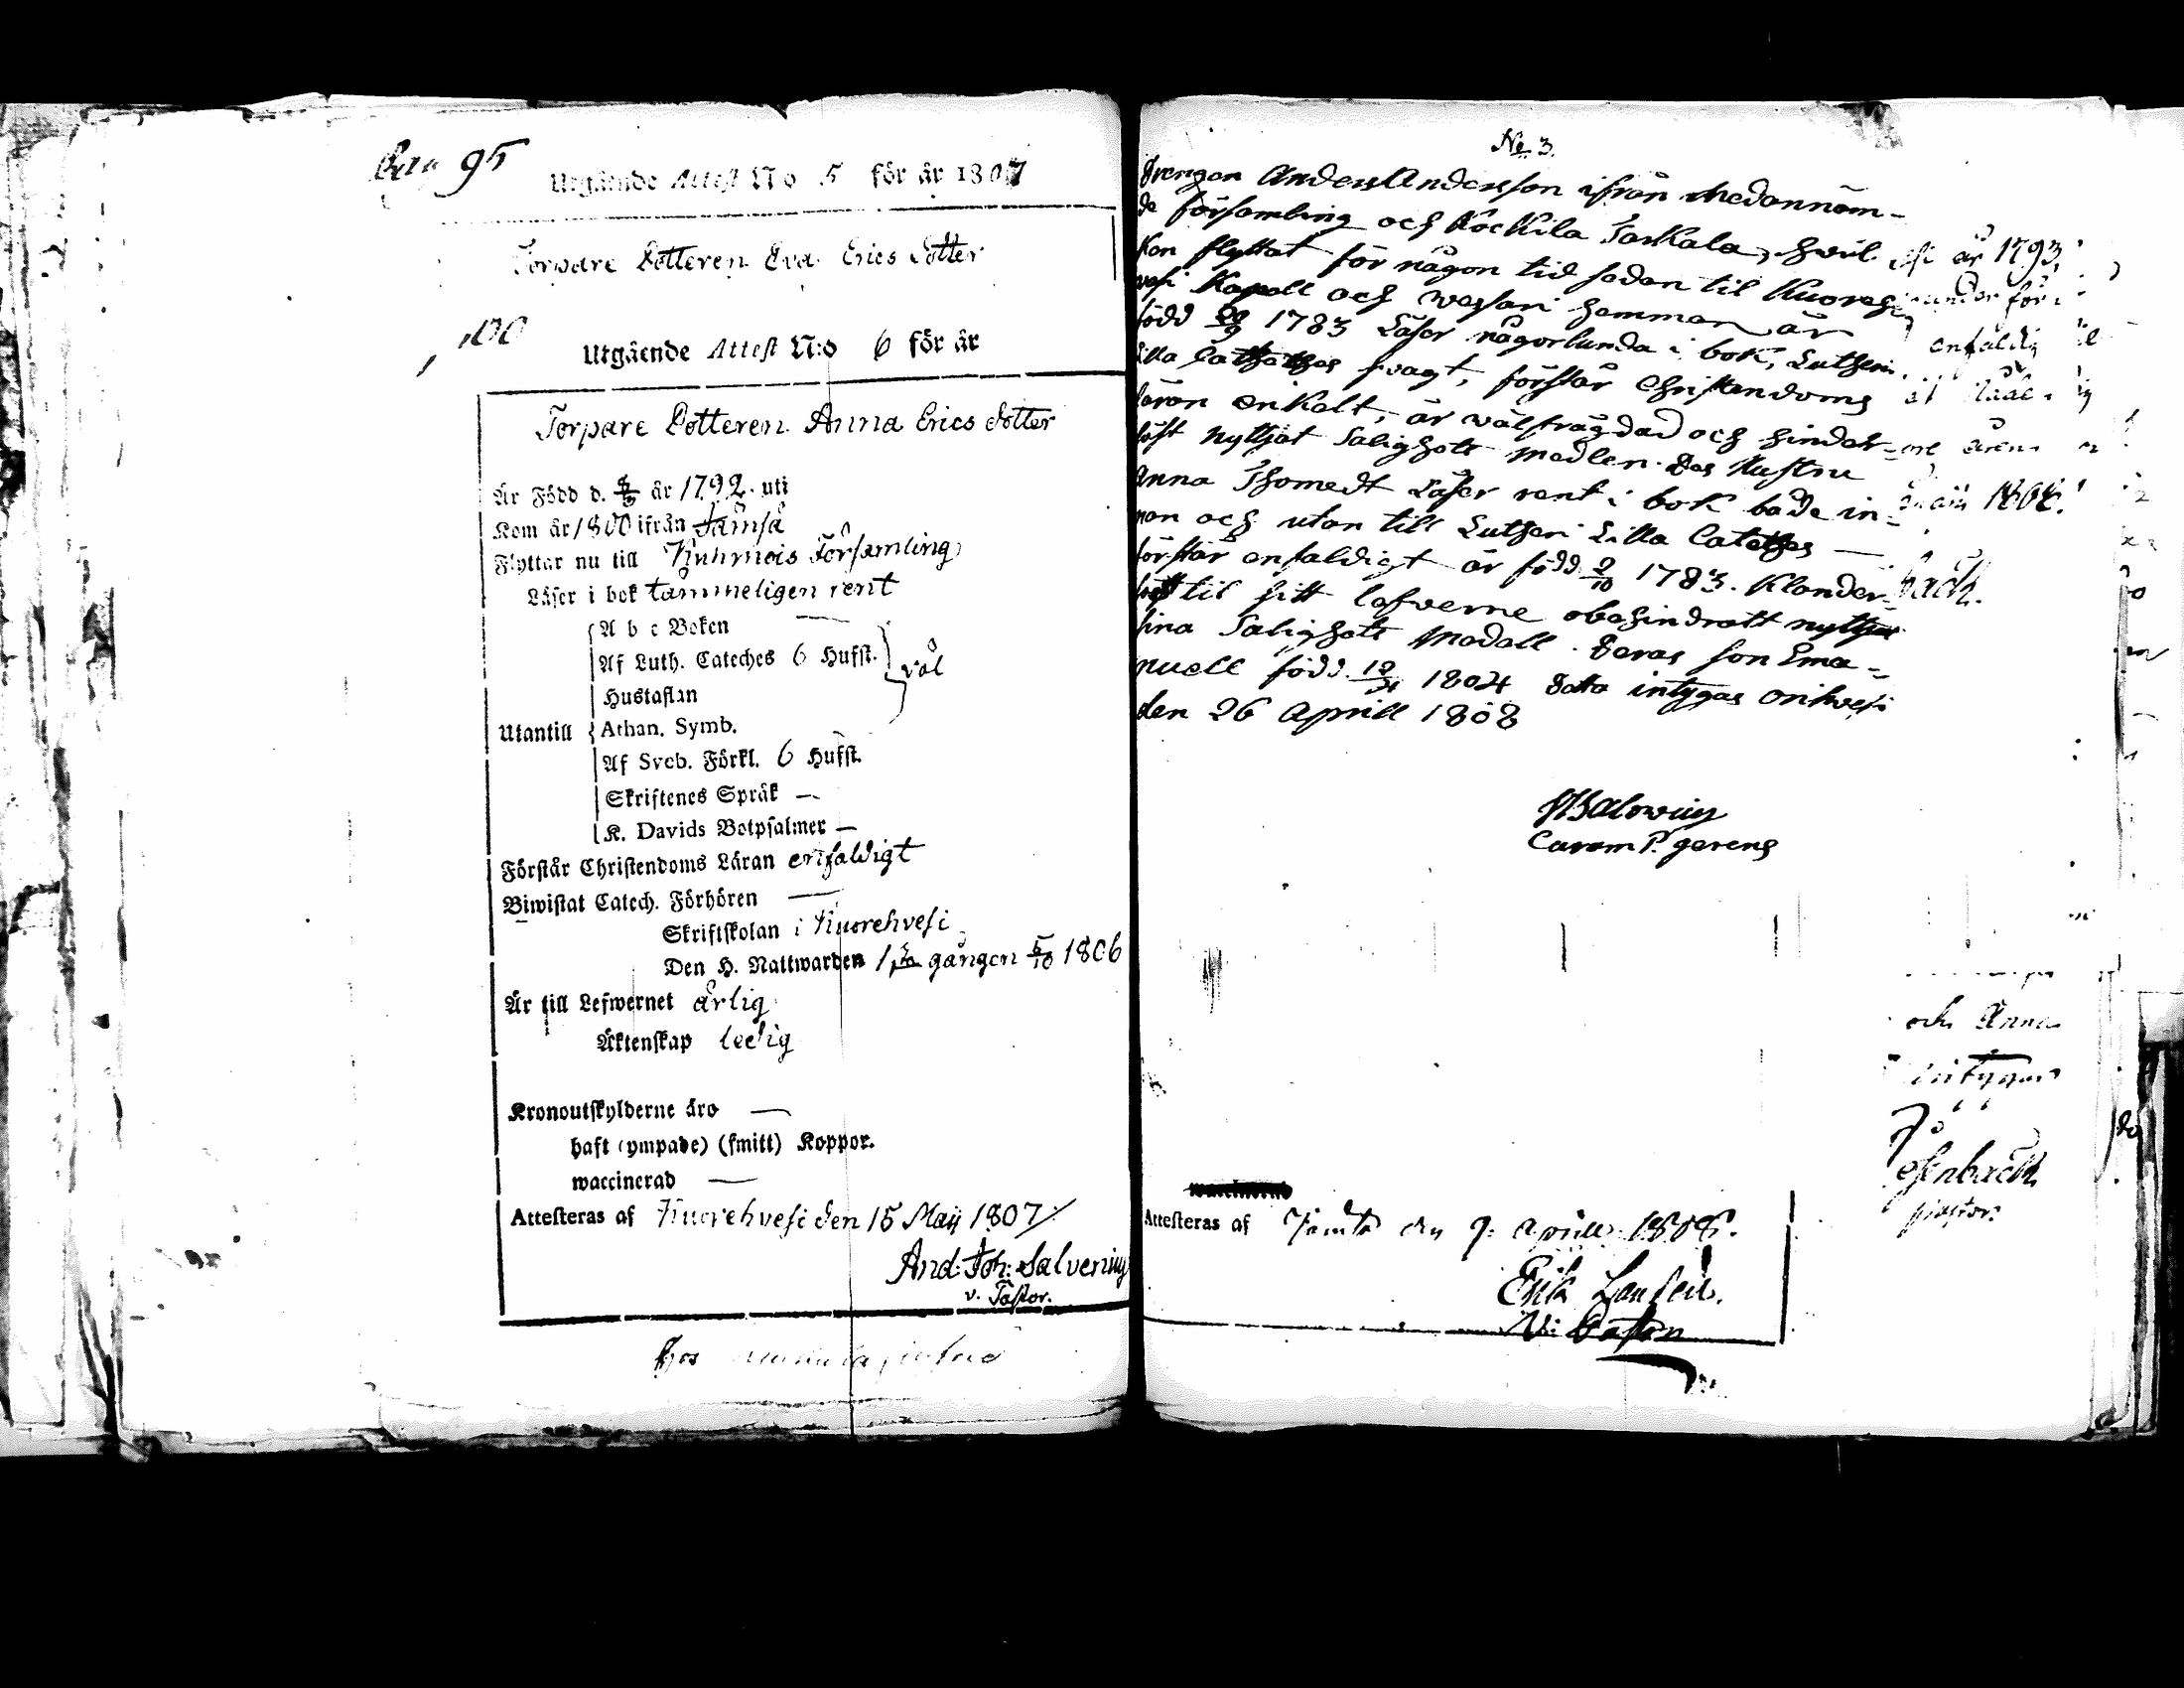 Pag 95
Utgående Attest No 5 för år 1807
Torpare Dotteren Eva Erics Dotter
100
Utgående Attest N:o 6 för år
Torpare Dotteren Anna Erics dotter
Är Född d. år 1792. uti
Kom år 1800 ifrån Jämsä
Flyttar nu till Kuhmois Församling
Läser i bok tämmeligen rent
A b c Boken —
Af Luth. Cateches 6 Hufst.
väl
Hustaflan
Utantill Athan. Symb.
Af Sveb. Förkl. 6 Hufst.
Skriftenes Språk —
K. Davids Botpsalmer —
Förstår Christendoms Läran enfaldigt
Biwistat Catech. Förhören —
Skriftskolan i Kuorehvesi
Den H. Nattwarden 1sta gången 5/10 1806
Är till Lefwernet ärlig
Äktenskap ledig
Kronoutskylderne äro —
haft (ympade) (smitt) Koppor.
waccinerad —
Attesteras af Kuorehvesi den 15 Maij 1807
And: Joh: Salvenius
v. Pastor.
hos
No 3.
Drengen Anders Andersson ifrån nedannäm-
de församling och Kockila Taskala, hvil-
ken flyttat för någon tid sedan til Kuoreh-
vesi Kapell och wessari hemman är
född 29/9 1783 Läser någorlunda i bok, Lutheri
Lilla Catheches svagt, förstår Christendoms
läran enkelt, är wälfrägdad och hinder-
löst nyttjat Salighets medlen. Des Hustru
Anna Thomedt Läser rent i bok både in-
nan och utan till Lutheri Lilla Cateches —
förstår enfaldigt är född 2/10 1783. Klander-
fritt til sitt lefverne obehindratt nyttjar
sina Salighets Medell. Deras son Ema-
nuell född 12/4 1804 Detta intygas Orihvesi
den 26 Aprill 1808
HSalovius
Curam P. gerens
år 1793
enfaldig
1808.
och Anna
intygar
pastor.
waccinerad
Attesteras af Jämsä den 9: Aprill 1808.
Erik
V: Pastor